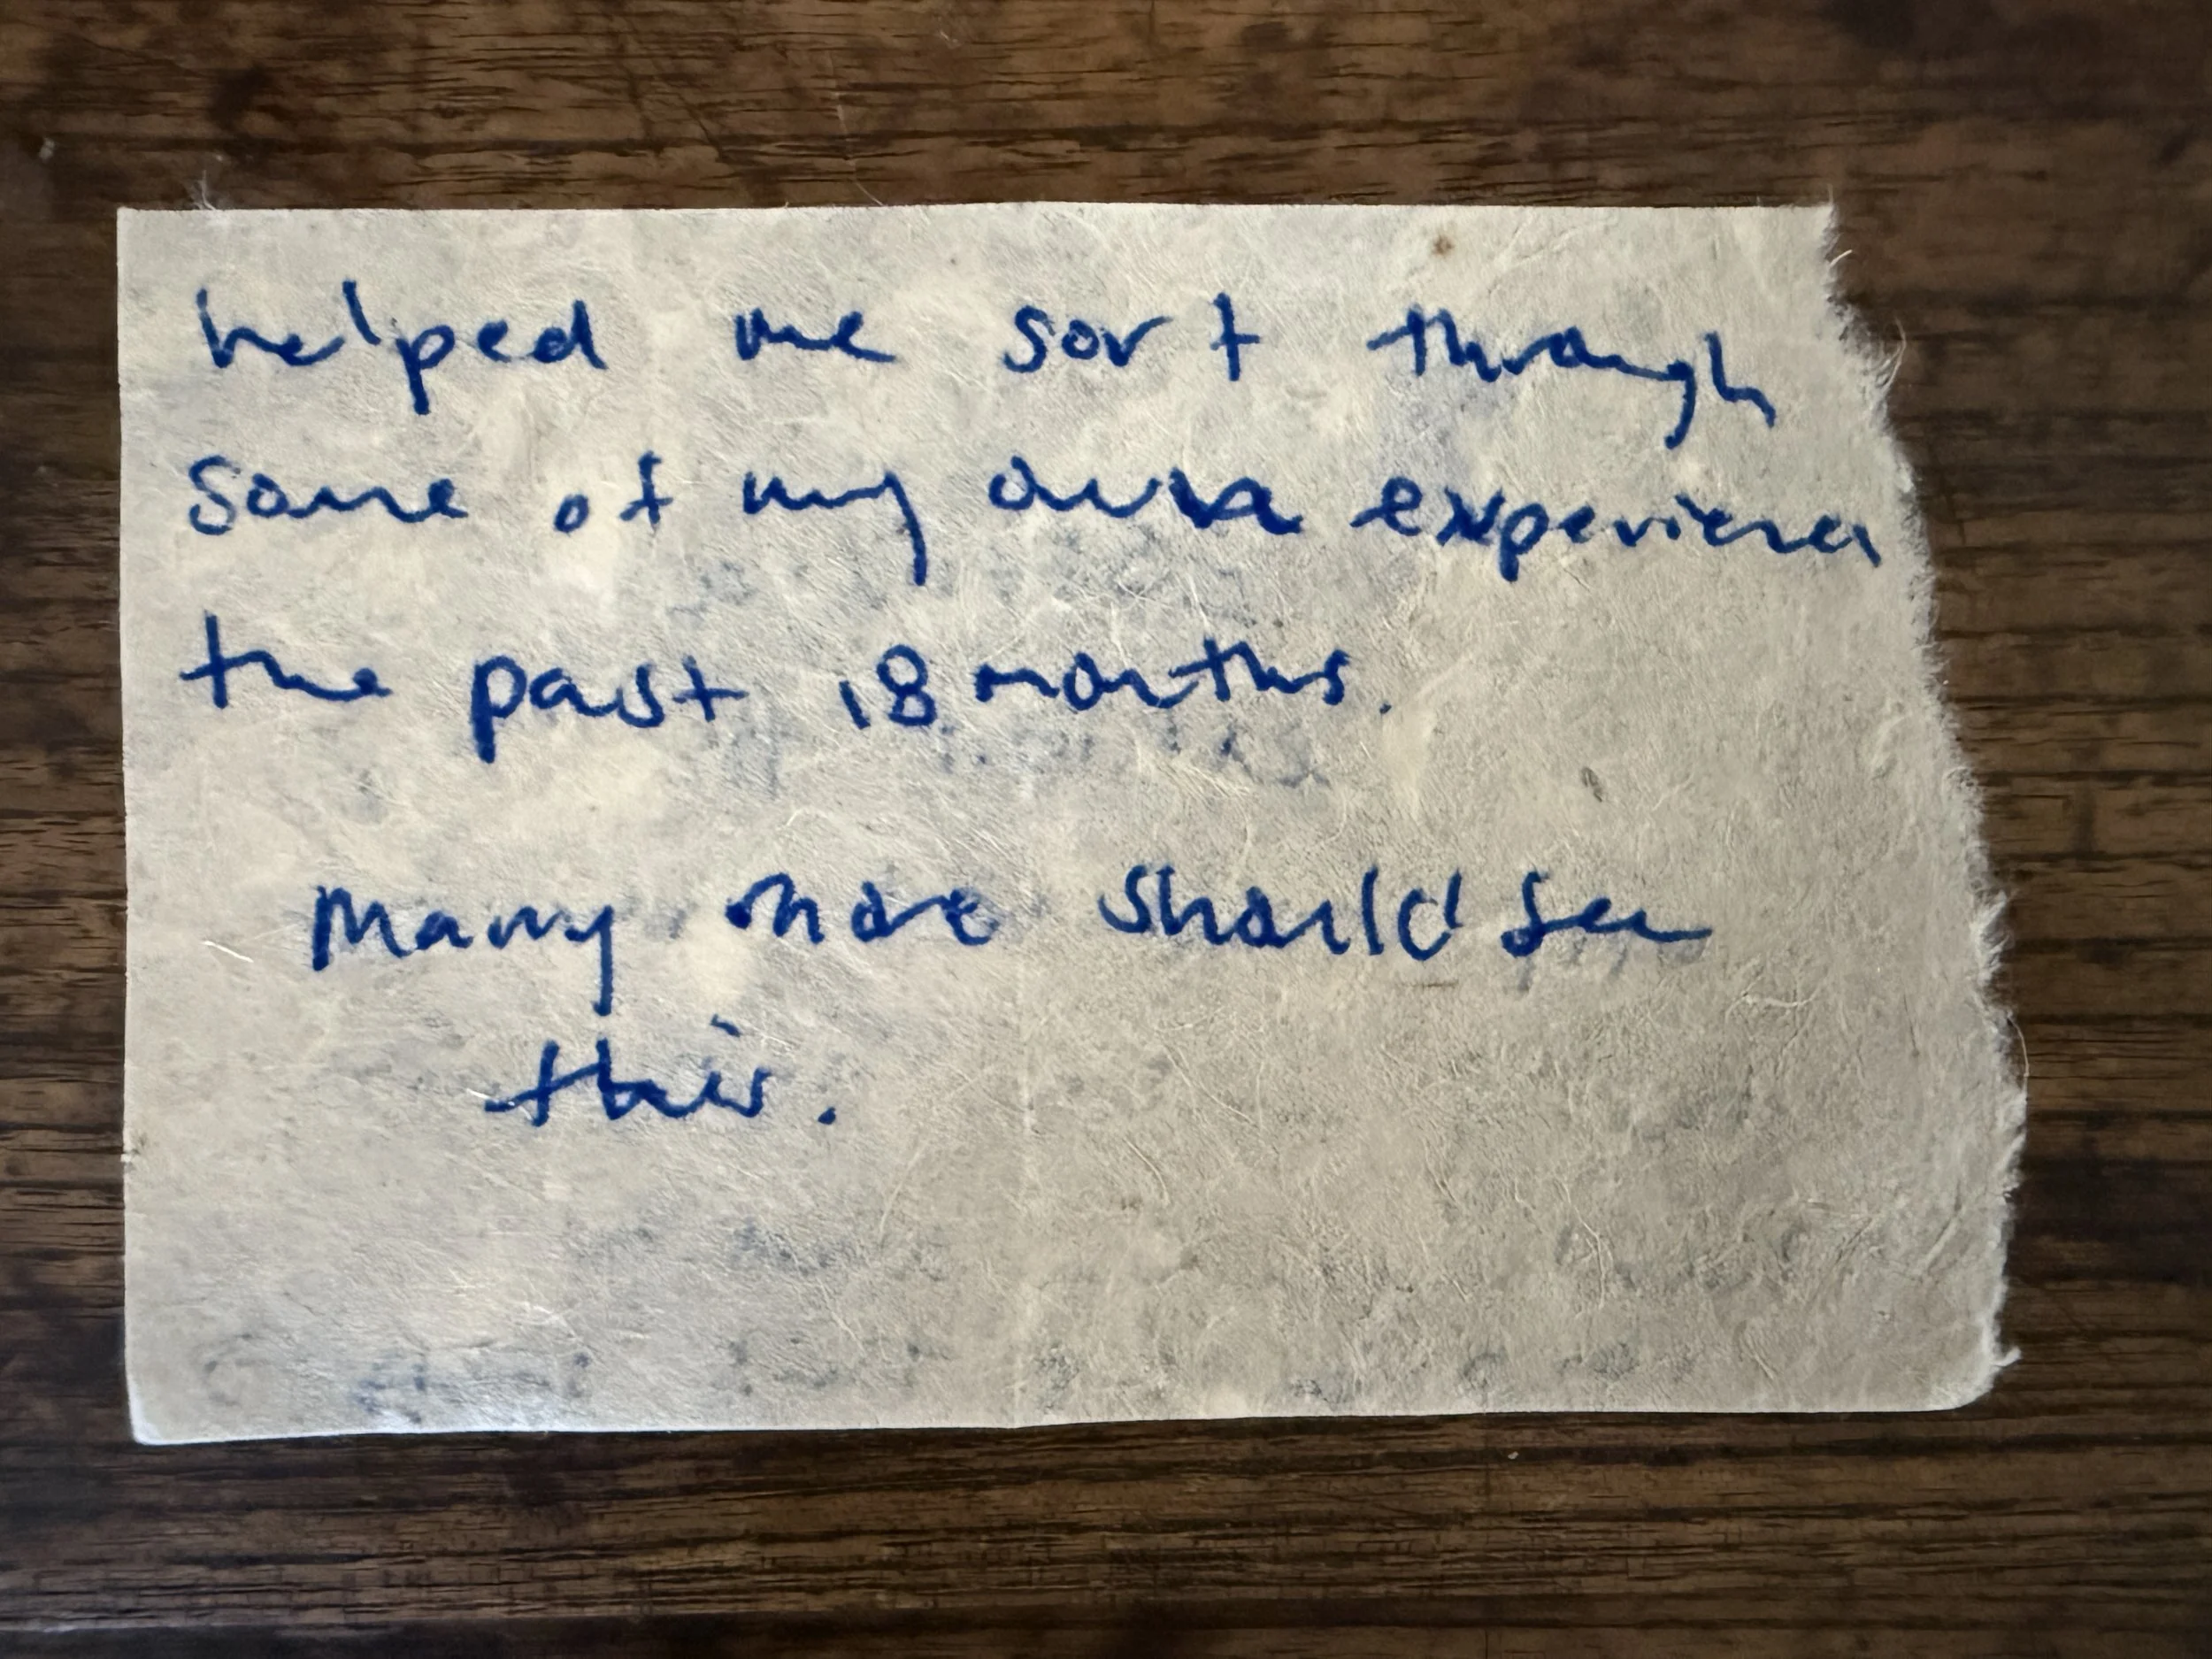 helped me sort through
some of my own experiences
the past 18 months.
Many more should see
this.